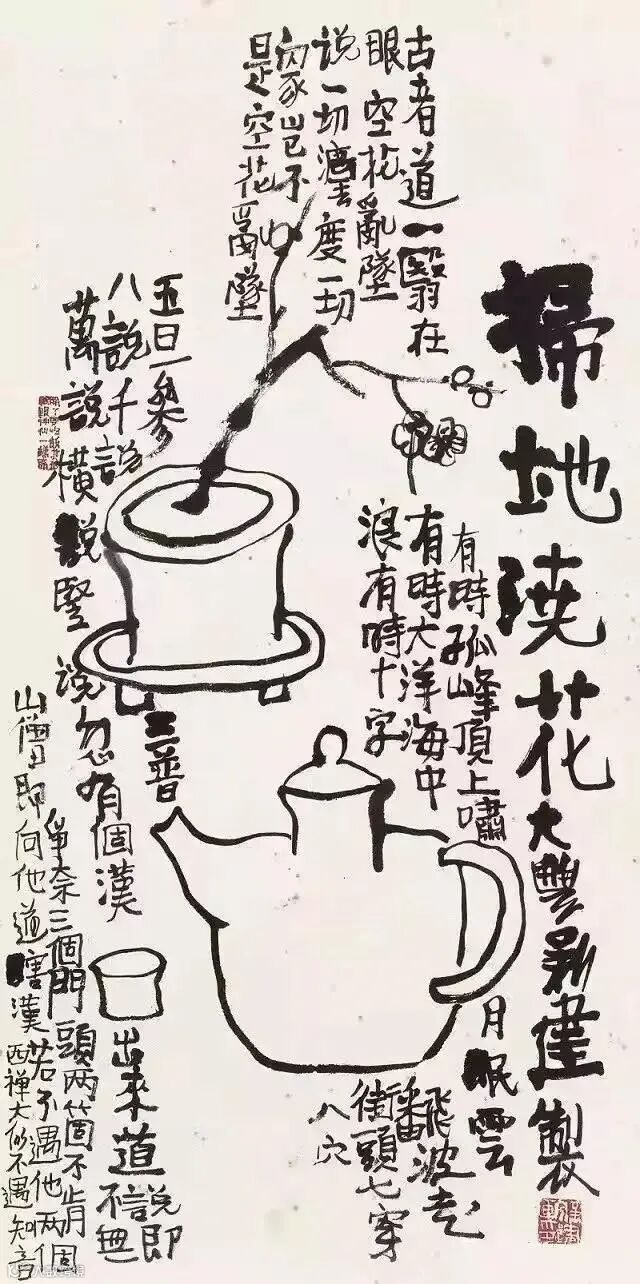 掃地浇花大豐新建製
古者道一翳在
眼空花亂墜
说一切法度一切
眾豈不
是空花亂墜
有時孤峰頂上嘯
月眠雲
有時大洋海中
飜波走
浪有時十字
街頭七穿
八穴
五日一參
三普
八說千說
萬說橫說豎说忽有個漢
出來道說即
不無
爭奈三個門頭两箇不肯
山僧即向他道瞎漢若不遇他两個
西禅大似不遇知音